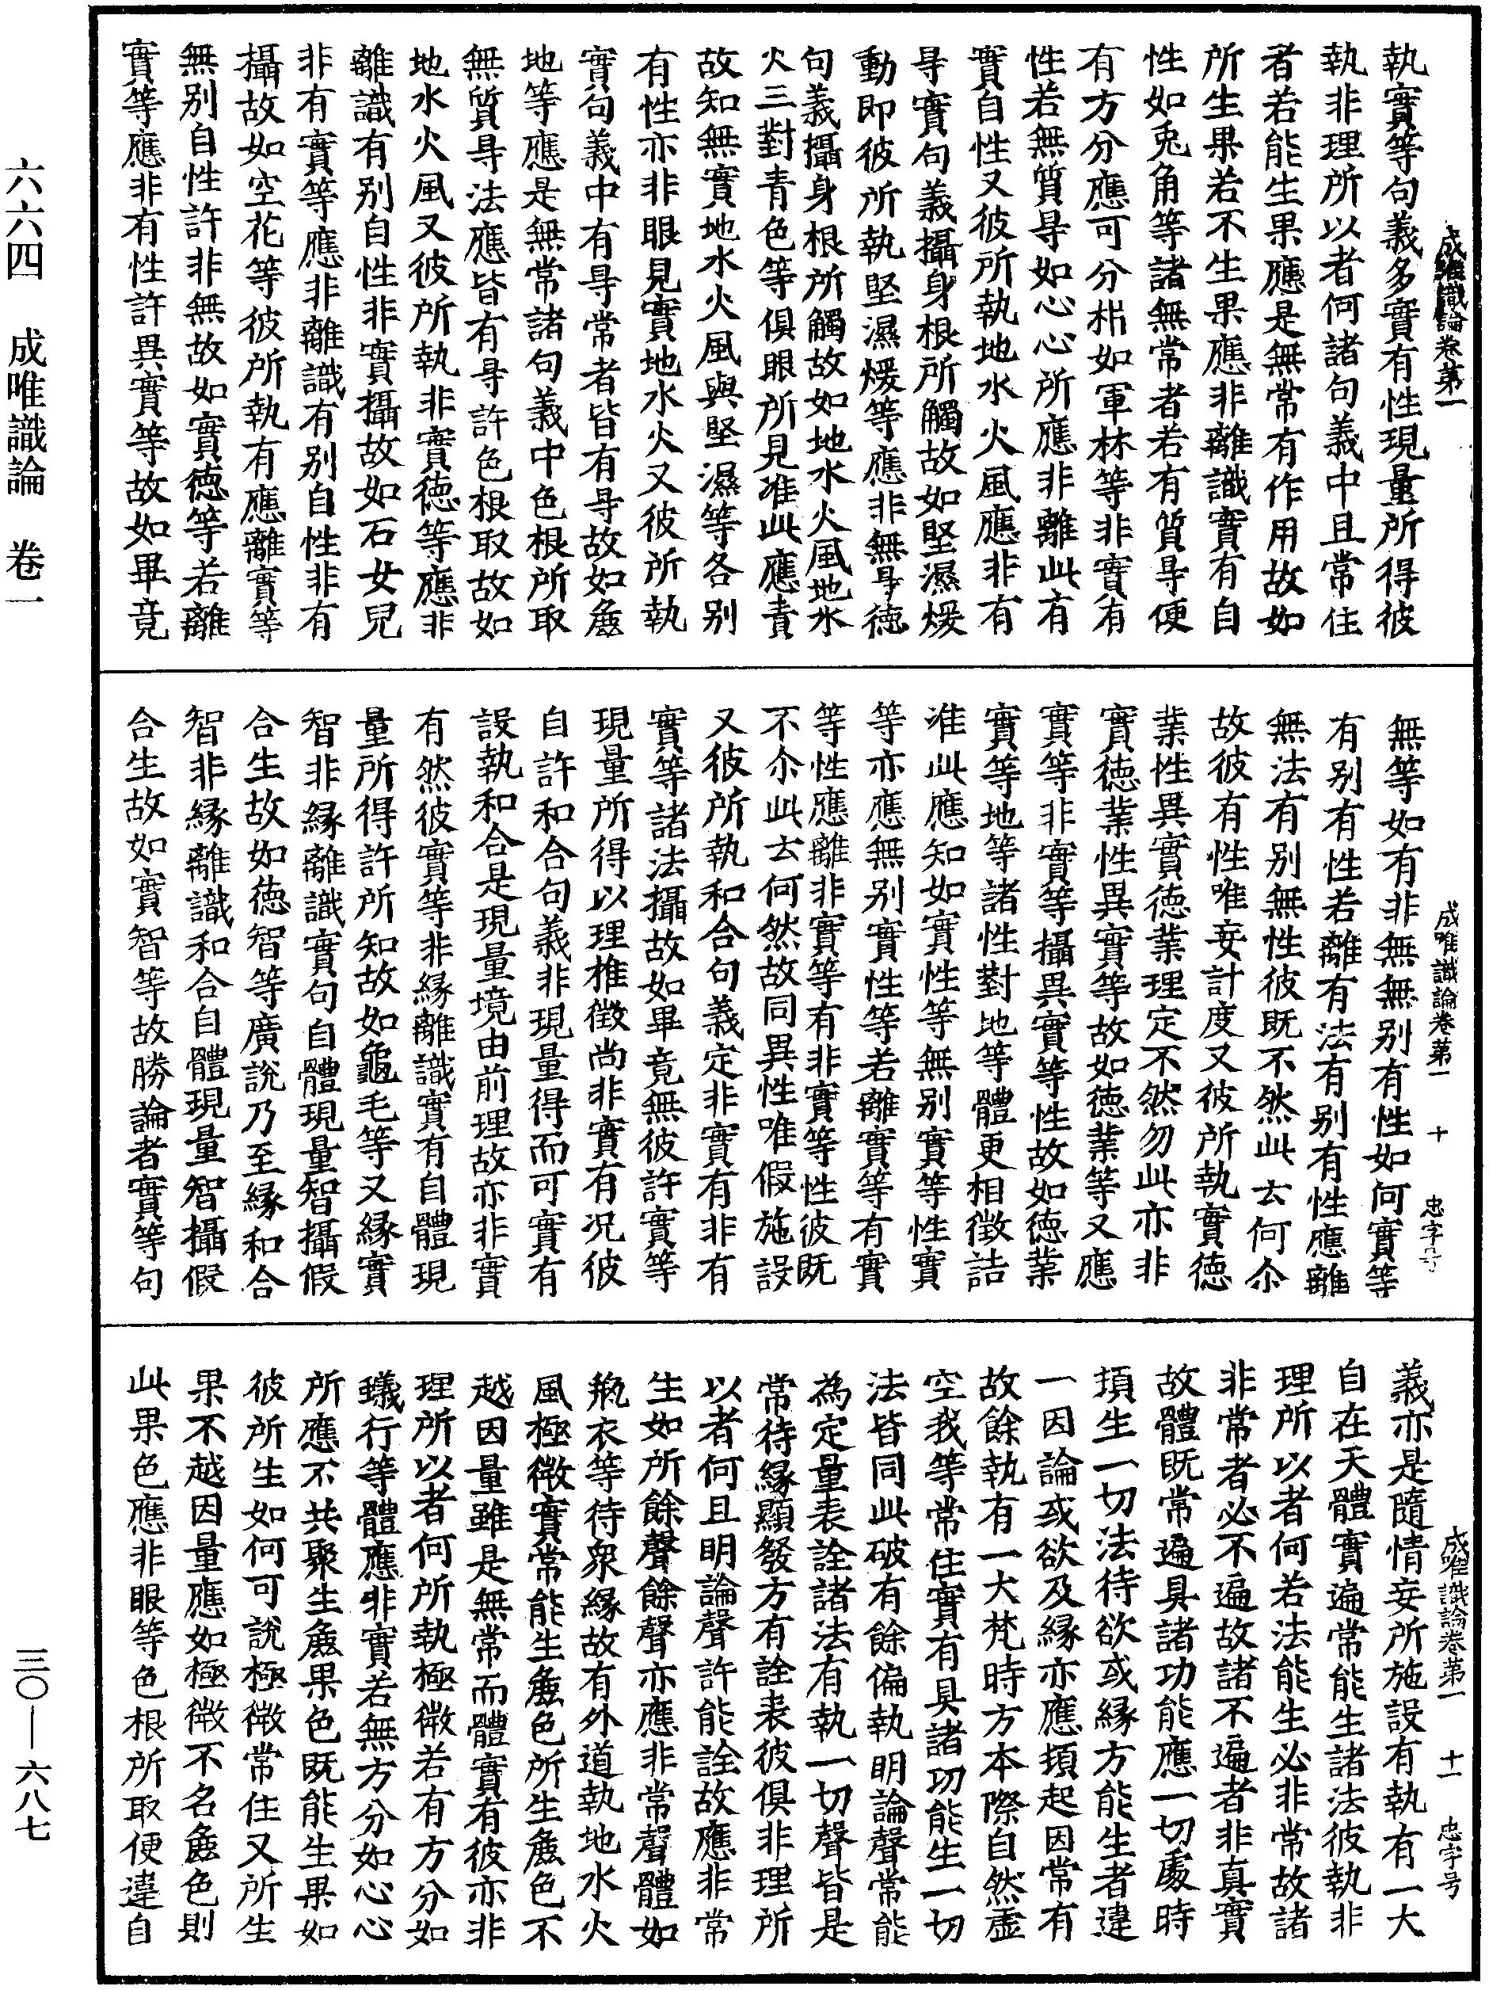 六六四　成唯識論　卷一
三〇—六八七
成唯識論卷第一
執實等句義多實有性現量所得彼
執非理所以者何諸句義中且常住
者若能生果應是無常有作用故如
所生果若不生果應非離識實有自
性如兎角等諸無常者若有質㝵便
有方分應可分㭊如軍林等非實有
性若無質㝵如心心所應非離此有
實自性又彼所執地水火風應非有
㝵實句義攝身根所觸故如堅濕煖
動即彼所執堅濕煖等應非無㝵德
句義攝身根所觸故如地水火風地水
火三對青色等俱眼所見准此應責
故知無實地水火風與堅濕等各別
有性亦非眼見實地水火又彼所執
實句義中有㝵常者皆有㝵故如麁
地等應是無常諸句義中色根所取
無質㝵法應皆有㝵許色根取故如
地水火風又彼所執非實德等應非
離識有別自性非實攝故如石女兒
非有實等應非離識有別自性非有
攝故如空花等彼所執有應離實等
無別自性許非無故如實德等若離
實等應非有性許異實等故如畢竟
成唯識論卷第一　十　忠字号
無等如有非無無別有性如何實等
有別有性若離有法有別有性應離
無法有別無性彼既不然此去何尒
故彼有性唯妄計度又彼所執實德
業性異實德業理定不然勿此亦非
實德業性異實等故如德業等又應
實等非實等攝異實等性故如德業
實等地等諸性對地等體更相徵詰
准此應知如實性等無別實等性實
等亦應無別實性等若離實等有實
等性應離非實等有非實等性彼既
不尒此去何然故同異性唯假施設
又彼所執和合句義定非實有非有
實等諸法攝故如畢竟無彼許實等
現量所得以理推徵尚非實有况彼
自許和合句義非現量得而可實有
設執和合是現量境由前理故亦非實
有然彼實等非緣離識實有自體現
量所得許所知故如龜毛等又緣實
智非緣離識實句自體現量智攝假
合生故如德智等廣說乃至緣和合
智非緣離識和合自體現量智攝假
合生故如實智等故勝論者實等句
成唯識論卷第一　十一　忠字号
義亦是隨情妄所施設有執有一大
自在天體實遍常能生諸法彼執非
理所以者何若法能生必非常故諸
非常者必不遍故諸不遍者非真實
故體既常遍具諸功能應一切處時
頓生一切法待欲或緣方能生者違
一因論或欲及緣亦應頓起因常有
故餘執有一大梵時方本際自然虛
空我等常住實有具諸功能生一切
法皆同此破有餘偏執明論聲常能
為定量表詮諸法有執一切聲皆是
常待緣顯發方有詮表彼俱非理所
以者何且明論聲許能詮故應非常
生如所餘聲餘聲亦應非常聲體如
瓶衣等待衆緣故有外道執地水火
風極微實常能生麁色所生麁色不
越因量雖是無常而體實有彼亦非
理所以者何所執極微若有方分如
蟻行等體應非實若無方分如心心
所應不共聚生麁果色既能生果如
彼所生如何可說極微常住又所生
果不越因量應如極微不名麁色則
此果色應非眼等色根所取便違自